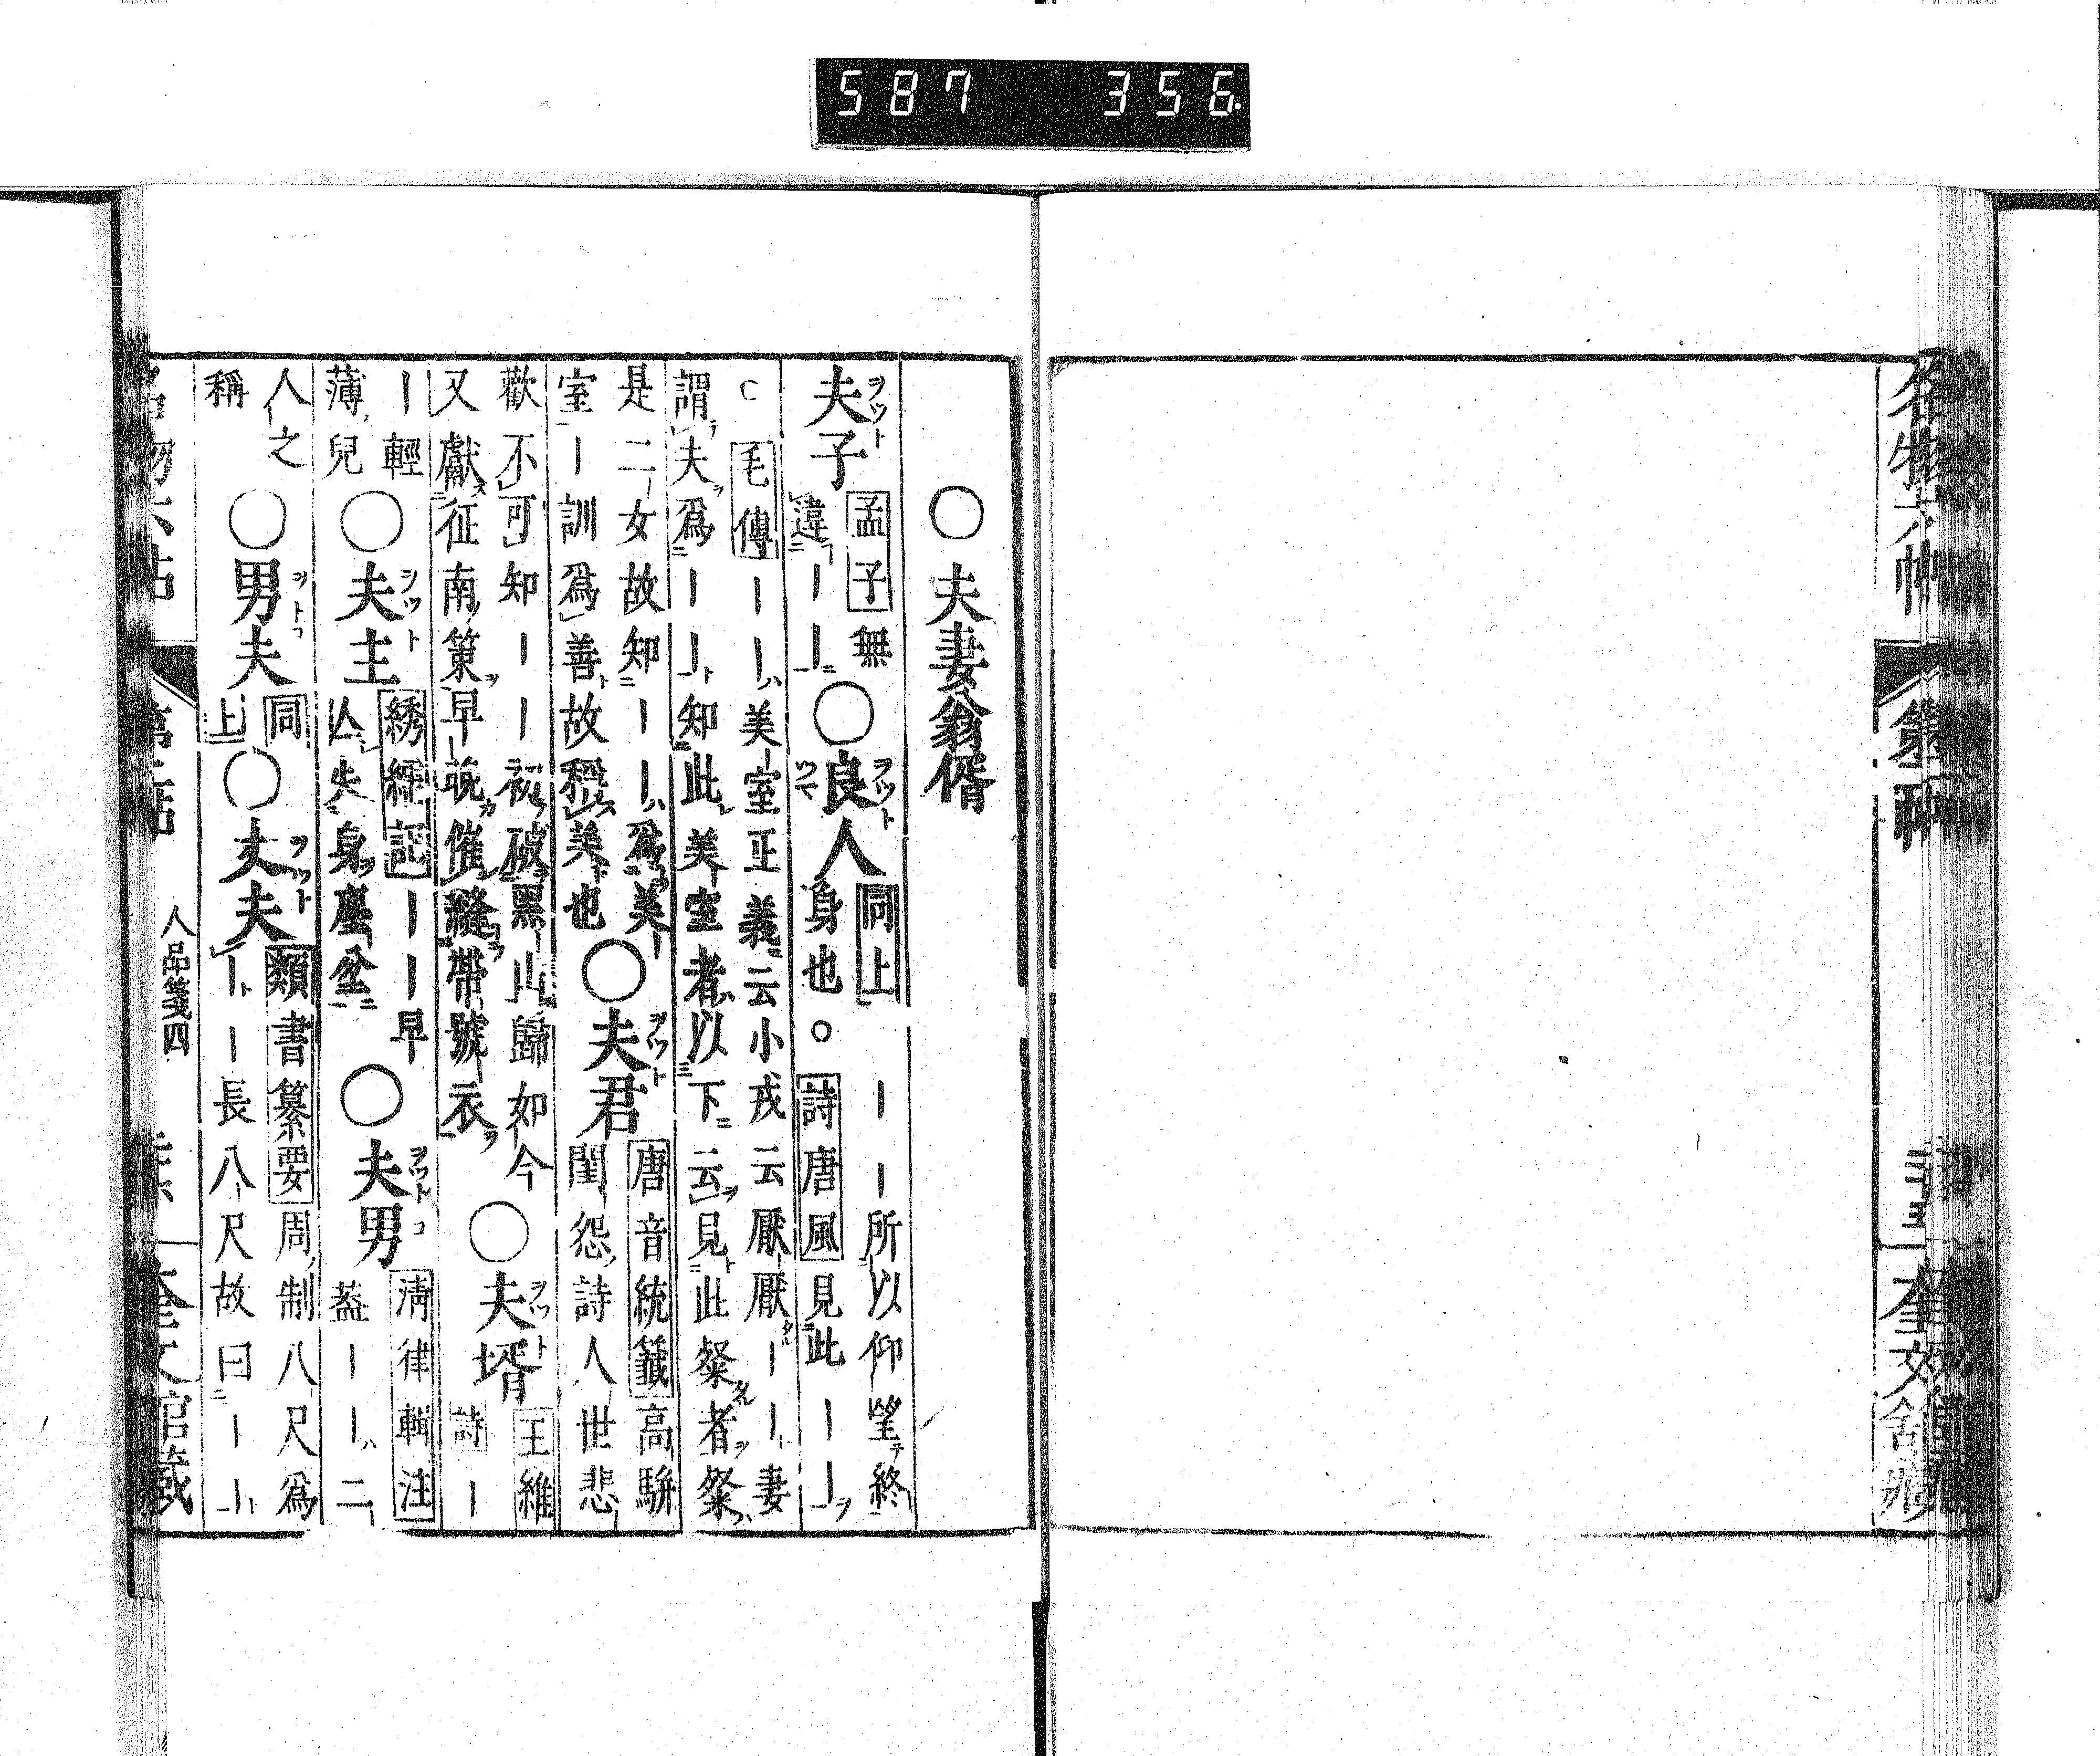 587 356
名物六帖
奎文舍
○夫妻翁偦
夫子 ヲツト 孟子 無違｜｜ ○良人 ヲツト 同上 ｜｜所以仰望終身也。 詩唐風 見此｜｜
毛傳 ｜｜美室正義云小戎云厭厭｜｜妻謂夫爲｜｜知此美室者以下云見此粲者粲
是二女故知｜｜爲美室｜訓爲善故稱美也 ○夫君 ヲツト 唐音統籤 高駢閨怨詩人世悲
歡不可知｜｜初破黑山歸如今又獻征南策早晚催縫帶號衣 ○夫壻 ヲツト 王維詩｜
｜輕薄兒 ○夫主 ヲツト 綉繻記 ｜｜早亾失身塵坌 ○夫男 ヲツトコ 淸律輯注 葢｜｜二
人之稱 ○男夫 ヲトコ 同上 ○丈夫 ヲツト 類書纂要 周制八尺爲｜｜長八尺故曰｜｜
人品箋四